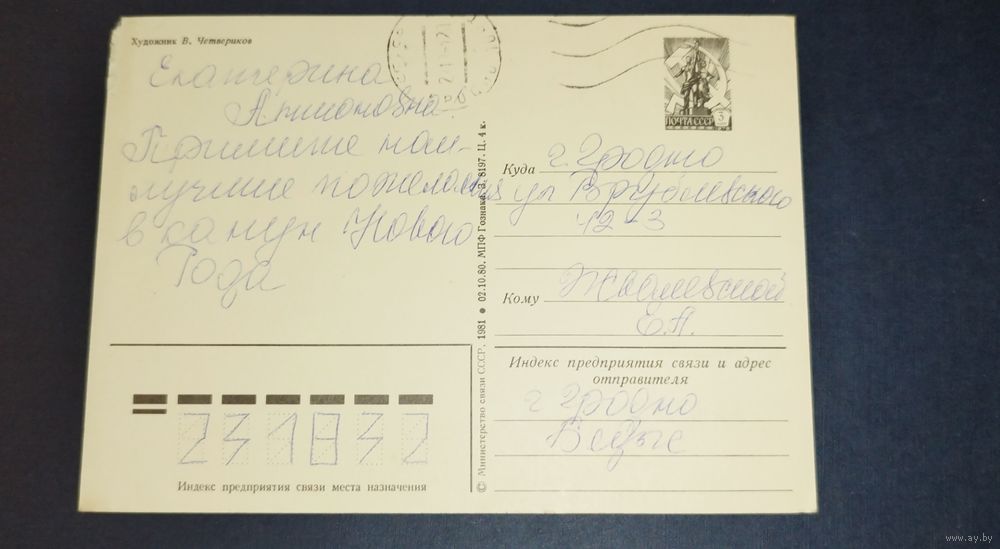 Художник В. Четвериков
Екатерина
Антоновна
Примите наи-
лучшие пожелания
в канун Нового
Года
ПОЧТА СССР 3
Куда г. Гродно
ул Врублевского
12-3
Кому
Е.А.
Индекс предприятия связи и адрес
отправителя
г Гродно
231832
Индекс предприятия связи места назначения
© Министерство связи СССР. 1981 ● 02.10.80. МПФ Гознака. З. 8197. Ц. 4 к.
www.ay.by